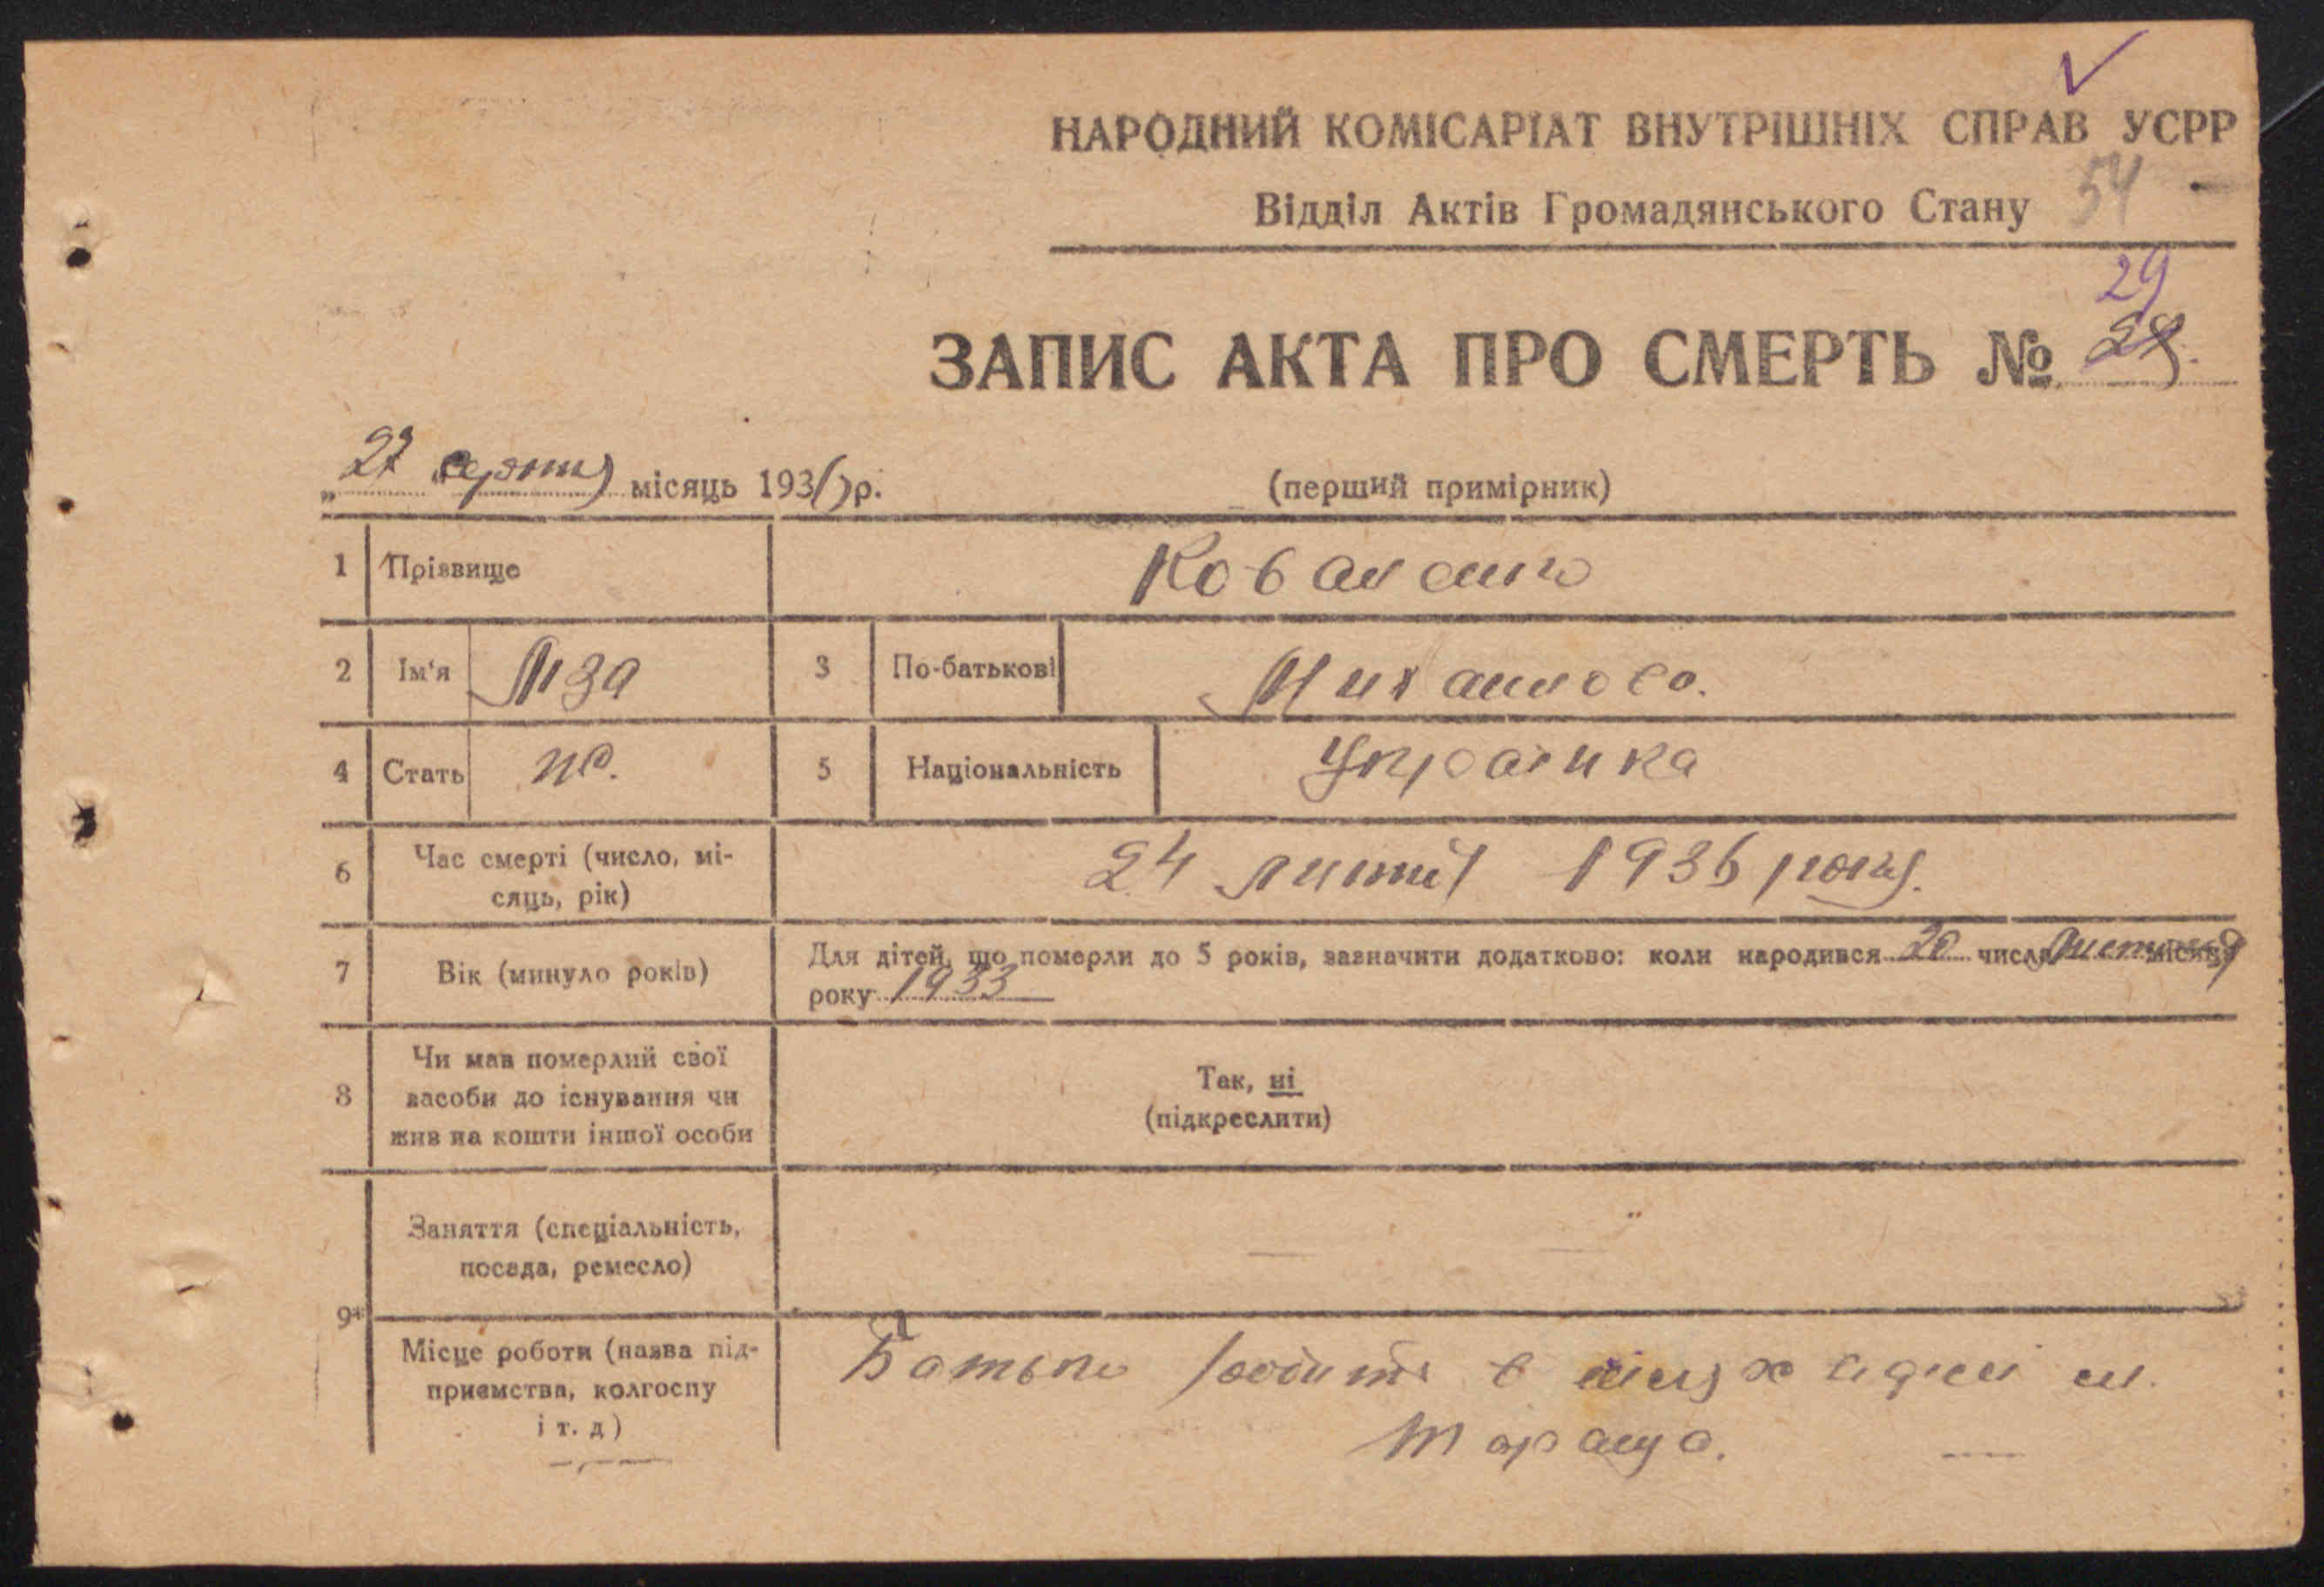 НАРОДНИЙ КОМІСАРІАТ ВНУТРІШНІХ СПРАВ УСРР
Відділ Актів Громадянського Стану 54
29
ЗАПИС АКТА ПРО СМЕРТЬ №
„27 серпня місяць 1936 р. (перший примірник)
1 Прізвище Коваленко
2 Ім‘я Ліза 3 По-батькові
4 Стать жін. 5 Національність Українка
6 Час смерті (число, мі-
сяць, рік) 24 1936 року.
7 Вік (минуло років) Для дітей, що померли до 5 років, зазначити додатково: коли народився 20 числа місяця
року 1933
8 Чи мав померлий свої
засоби до існування чи
жив на кошти іншої особи
Так, ні
(підкреслити)
Заняття (спеціальність,
посада, ремесло) —
9*
Місце роботи (назва під-
приємства, колгоспу
і т. д) Батько робить в м.
Тараща.